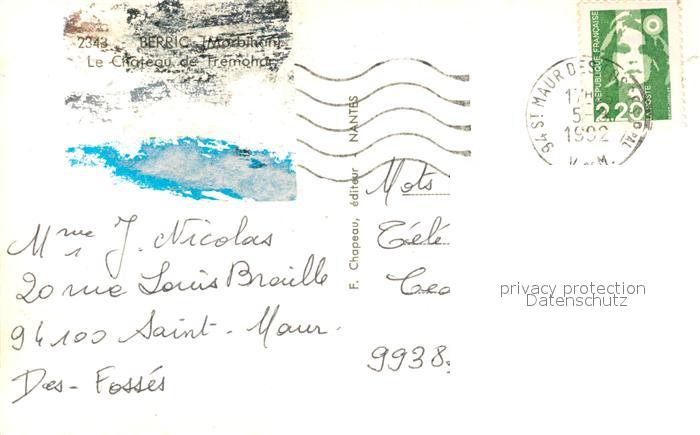 2343 BERRIC (Morbihan)
Le Château de Trémohar
F. Chapeau, éditeur - NANTES
RÉPUBLIQUE FRANÇAISE
2,20
LA POSTE
94 ST MAUR DES
17H
5-
1992
Mme J. Nicolas
20 rue Louis Braille
94100 Saint-Maur-
Des-Fossés
Mots
Télé
9938
privacy protection
Datenschutz